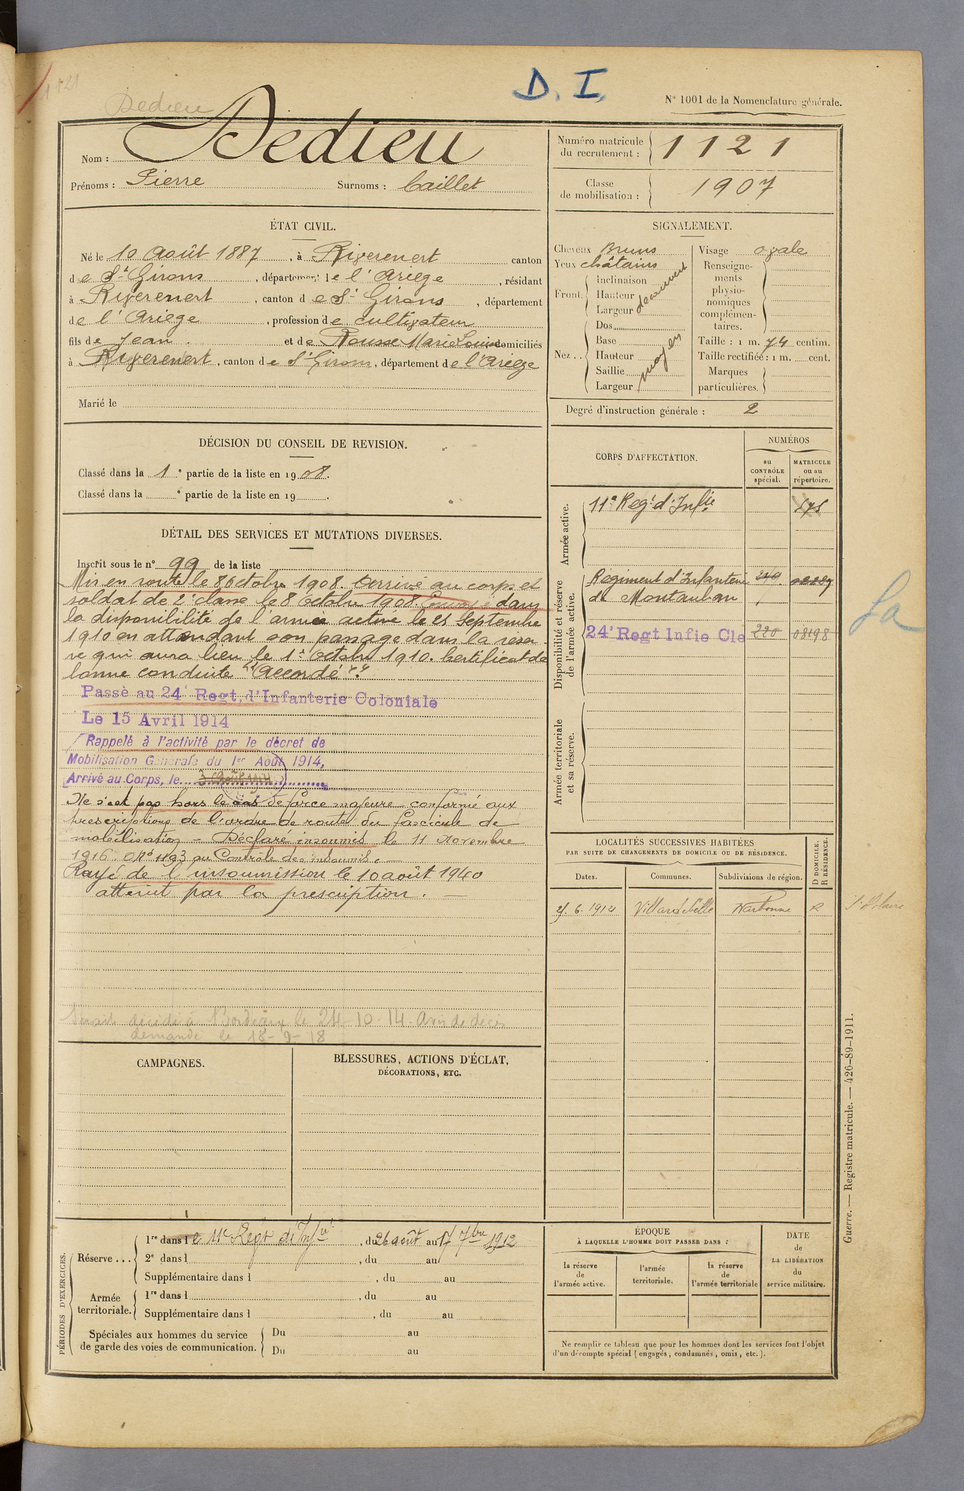 Dedieu
D. I.
N° 1001 de la Nomenclature générale.
Nom : Dedieu
Prénoms : Pierre Surnoms : Caillet
Numéro matricule du recrutement : 1121
Classe de mobilisation : 1907
ÉTAT CIVIL.
Né le 10 Août 1887, à Riverenert canton
de St Girons, département de l'Ariège, résidant
à Riverenert, canton de St Girons, département
de l'Ariège, profession de cultivateur
fils de Jean et de Rousse Marie Louise domiciliés
à Riverenert, canton de St Girons, département de l'Ariège
Marié le
SIGNALEMENT.
Cheveux Bruns
Yeux châtains
Front. Inclinaison
Hauteur
Largeur
Nez.. Dos
Base
Hauteur
Saillie
Largeur
moyen
Visage ovale
Renseignements physionomiques complémentaires.
Taille : 1 m. 74 centim.
Taille rectifiée : 1 m. cent.
Marques particulières.
Degré d'instruction générale : 2
DÉCISION DU CONSEIL DE REVISION.
Classé dans la 1e partie de la liste en 1908.
Classé dans la e partie de la liste en 19 .
DÉTAIL DES SERVICES ET MUTATIONS DIVERSES.
Inscrit sous le n° 99 de la liste
Mis en route le 8 Octobre 1908. Arrivé au corps et
soldat de 2e classe le 8 Octobre 1908. Envoyé dans
la disponibilité de l'armée active le 25 Septembre
1910 en attendant son passage dans la réser
ve qui aura lieu le 1er Octobre 1910. Certificat de
bonne conduite "Accordé".
Passé au 24e Regt. d'Infanterie Coloniale
Le 15 Avril 1914
Rappelé à l'activité par le décret de
Mobilisation Générale du 1er Août 1914,
Arrivé au Corps, le
Ne s'est pas hors le cas de force majeure conformé aux
prescriptions de l'ordre de route du fascicule de
mobilisation - Déclaré insoumis le 11 Novembre
1916. N° 1193 au Contrôle des insoumis.
Rayé de l'insoumission le 10 août 1940
atteint par la prescription.
Serait décédé à Bordeaux le 24-10-14. Avis de décès
demandé le 18-9-18
CORPS D'AFFECTATION.
NUMÉROS
au CONTRÔLE spécial.
MATRICULE ou au répertoire.
Armée active.
11e Regt d'Infie
Disponibilité et réserve de l'armée active.
Régiment d'Infanterie
de Montauban
24e Regt Infie Cle 220 08198
La
Armée territoriale et sa réserve.
LOCALITÉS SUCCESSIVES HABITÉES
PAR SUITE DE CHANGEMENTS DE DOMICILE OU DE RÉSIDENCE.
D DOMICILE. R RÉSIDENCE.
Dates. Communes. Subdivisions de région.
6. 1914 Villardebelle Narbonne R
St Hilaire
CAMPAGNES.
BLESSURES, ACTIONS D'ÉCLAT,
DÉCORATIONS, ETC.
PÉRIODES D'EXERCICES.
Réserve... 1re dans le 11e Regt d'Infie, du 26 août au 17 7bre 1912
2e dans l , du au
Supplémentaire dans l , du au
Armée territoriale. 1re dans l , du au
Supplémentaire dans l , du au
Spéciales aux hommes du service de garde des voies de communication. Du au
Du au
ÉPOQUE
À LAQUELLE L'HOMME DOIT PASSER DANS :
la réserve de l'armée active.
l'armée territoriale.
la réserve de l'armée territoriale
DATE
de
LA LIBÉRATION
du
service militaire.
Ne remplir ce tableau que pour les hommes dont les services font l'objet
d'un décompte spécial (engagés, condamnés, omis, etc.).
Guerre. — Registre matricule. — 426-89-1911.